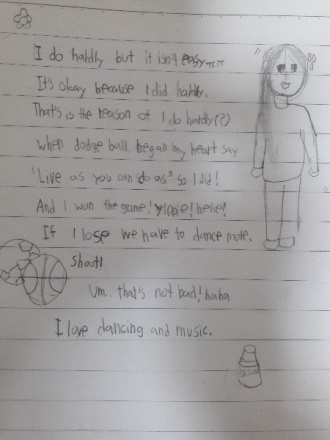 I do hardly but it isn't easy ㅠㅠ
It's okay because I did hardly.
That's is the reason of I do hardly(?)
When dodge ball began my heart say
"Live as you can do as" so I did!
And I wun the game! Yippie! hehe!
If I lose we have to dance more.
Shoot!
Um.. that's not bad! haha
I love dancing and music.